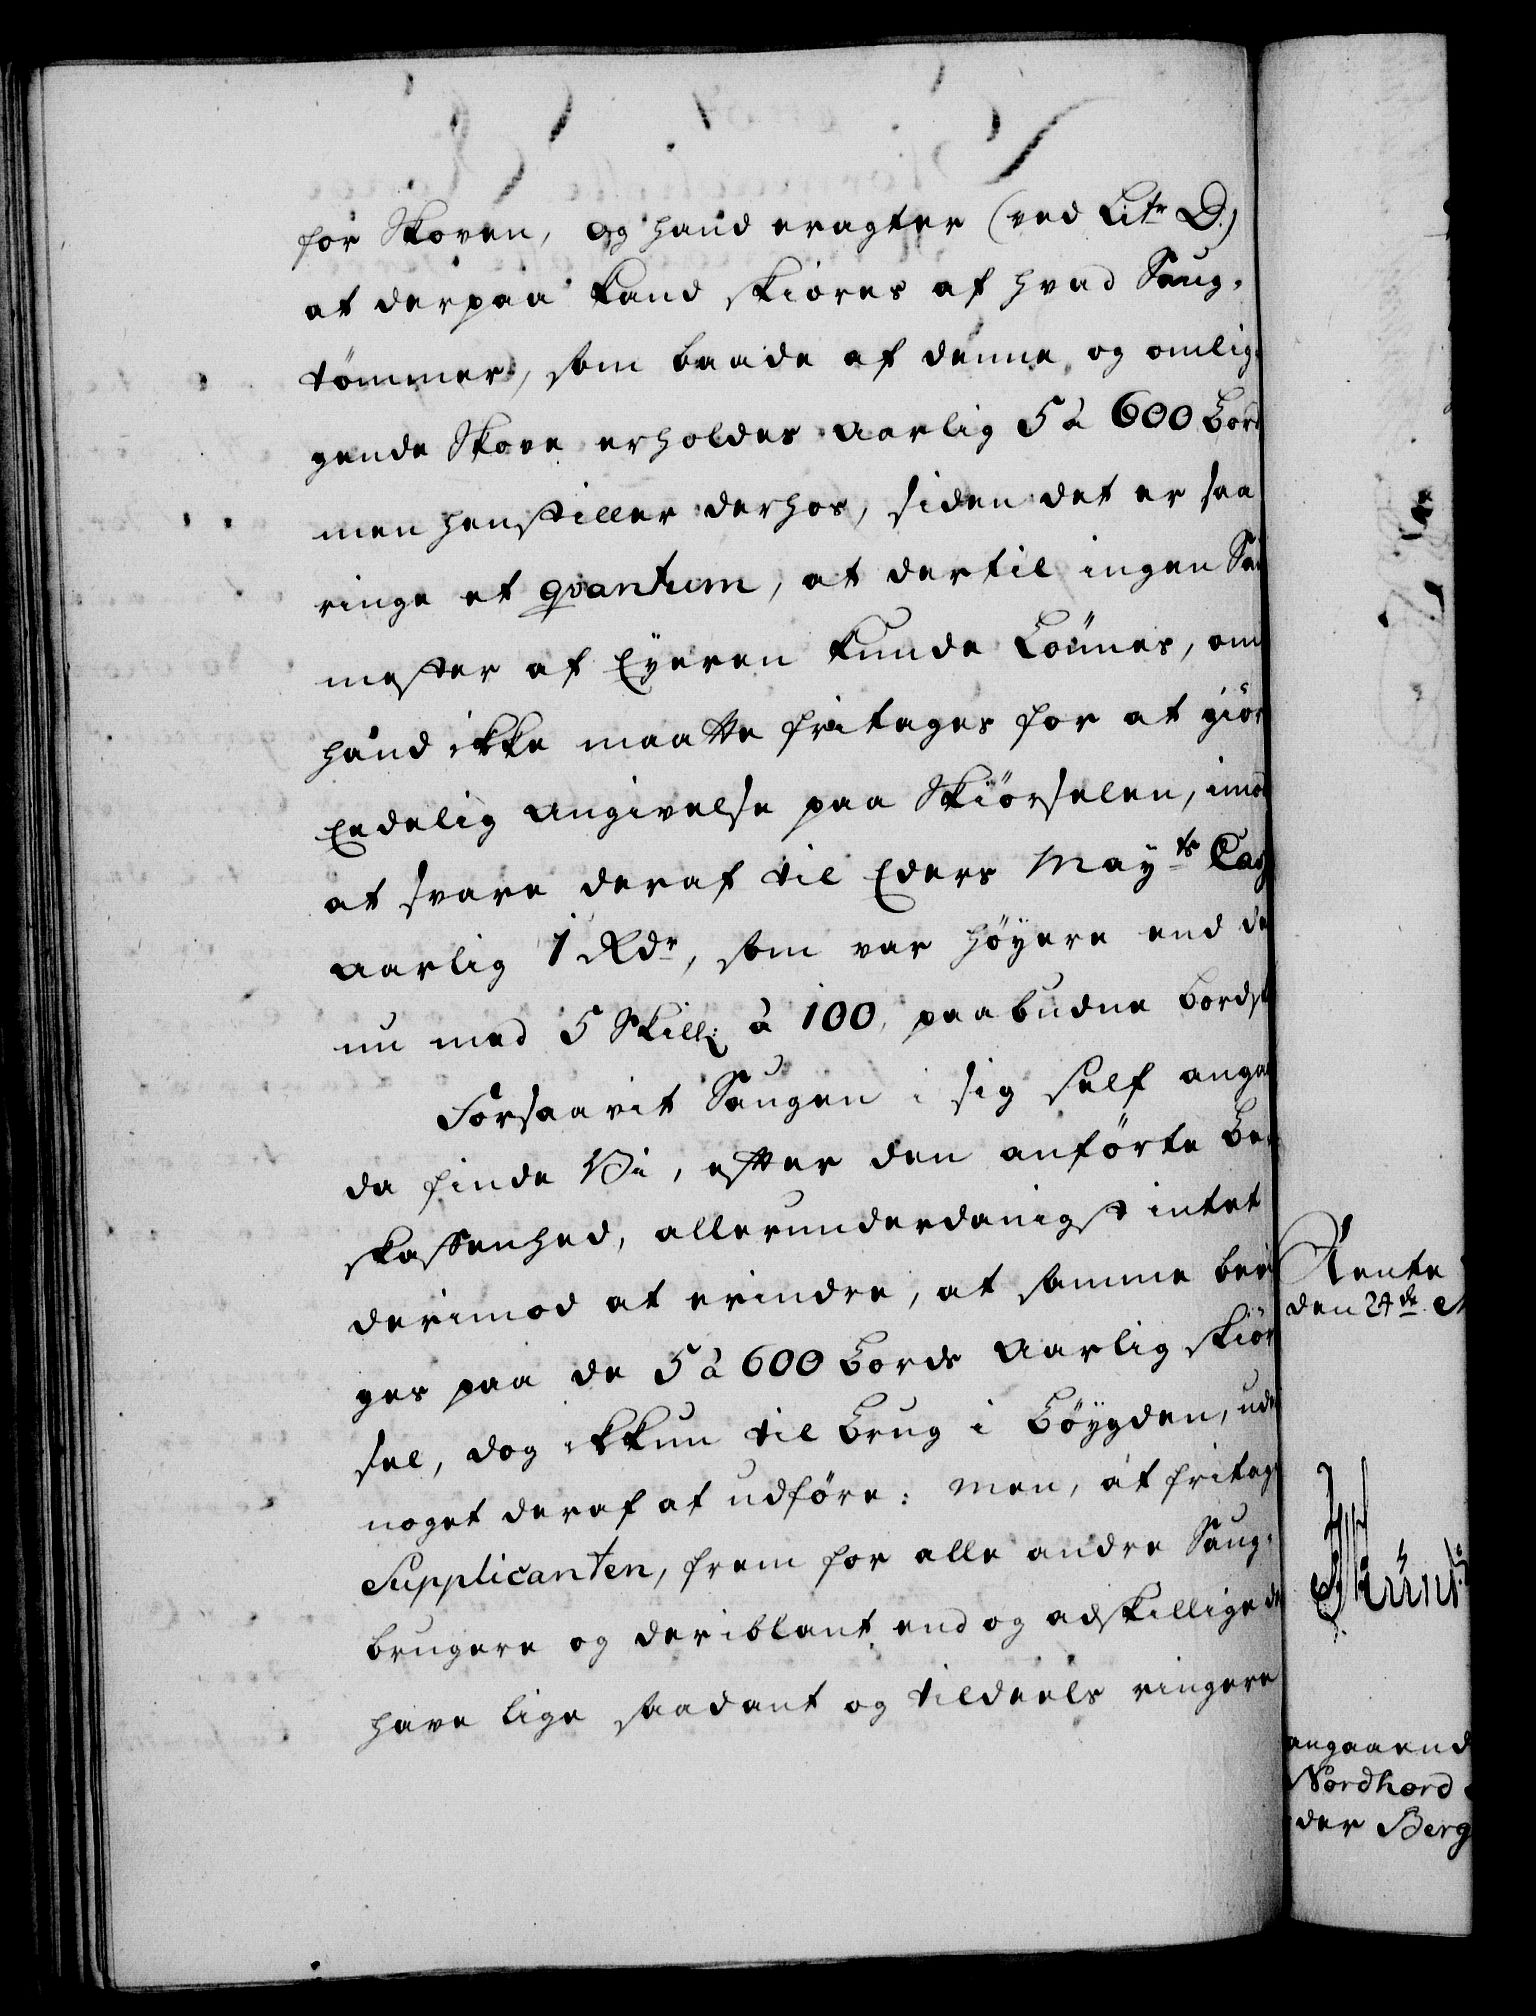 for Skoven, og hand eragter (ved Litr D.)
at derpaa kand skiøres af hvad Saug-
tömmer, som baade af denne og omlig-
gende Skove erholdes aarlig 5 à 600 Bord
men henstiller derhos, siden det er saa
ringe et qvantum, at dertil ingen
mester af Eyeren kunde Lönnes, om
hand ikke maatte fritages for at giör
Eedelig Angivelse paa Skiörselen, imod
at svare deraf til Eders Mayts Cas
aarlig 1 Rdr, som var höyere end de
nu med 5 Skill: à 100 paabudne Bords
Forsaavit Saugen i sig self anga
da finde Vi, efter den anförte Be-
skaffenhed, allerunderdanigst intet
derimod at erindre, at samme
ges paa de 5 à 600 Bords Aarlig skiör
sel, dog ikkun til Brug i Böygden, ude
noget deraf at udföre: Men, at fritag
Supplicanten, frem for alle andre Saug-
brugere og deriblant end og adskillige de
have lige saadant og tildeels ringere
Rente
den 24de
angaaend
Nordhord
der Berg